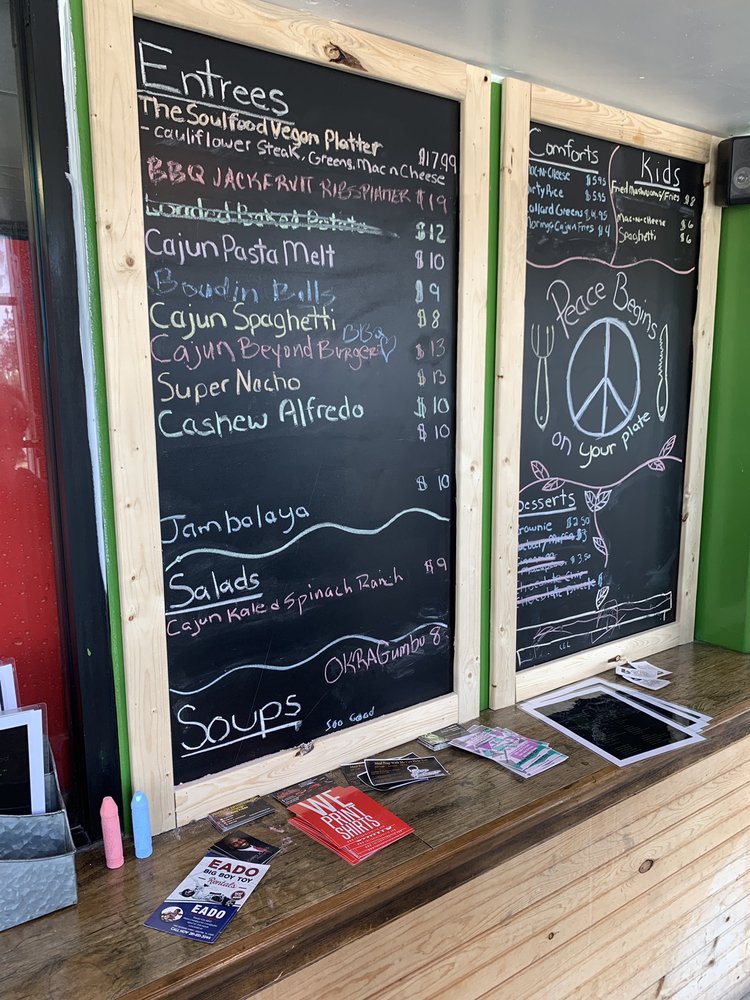 Entrees
The Soulfood Vegan Platter
- cauliflower Steak, Greens, Mac n Cheese $17.99
BBQ JACKFRUIT RIBS PLATTER $19
Loaded Baked Potato $12
Cajun Pasta Melt $10
Boudin Balls $9
Cajun Spaghetti $8
BBQ
Cajun Beyond Burger $13
Super Nacho $13
Cashew Alfredo $10
$10
$10
Jambalaya
Salads
Cajun Kale & Spinach Ranch $9
OKRA Gumbo 8
Soups
Soo Good
Comforts
Mac-n-Cheese $5.95
Dirty Rice $5.95
Collard Greens $4.95
Cajun Fries $4
Kids
Fried Mushrooms/Fries $8
Mac-n-Cheese $6
Spaghetti $6
Peace Begins
on your plate
Desserts
Brownie $2.50
$3
$3.50
Chocolate Chip
WE
PRINT
SHIRTS
EADO
BIG BOY TOY
Rentals
EADO